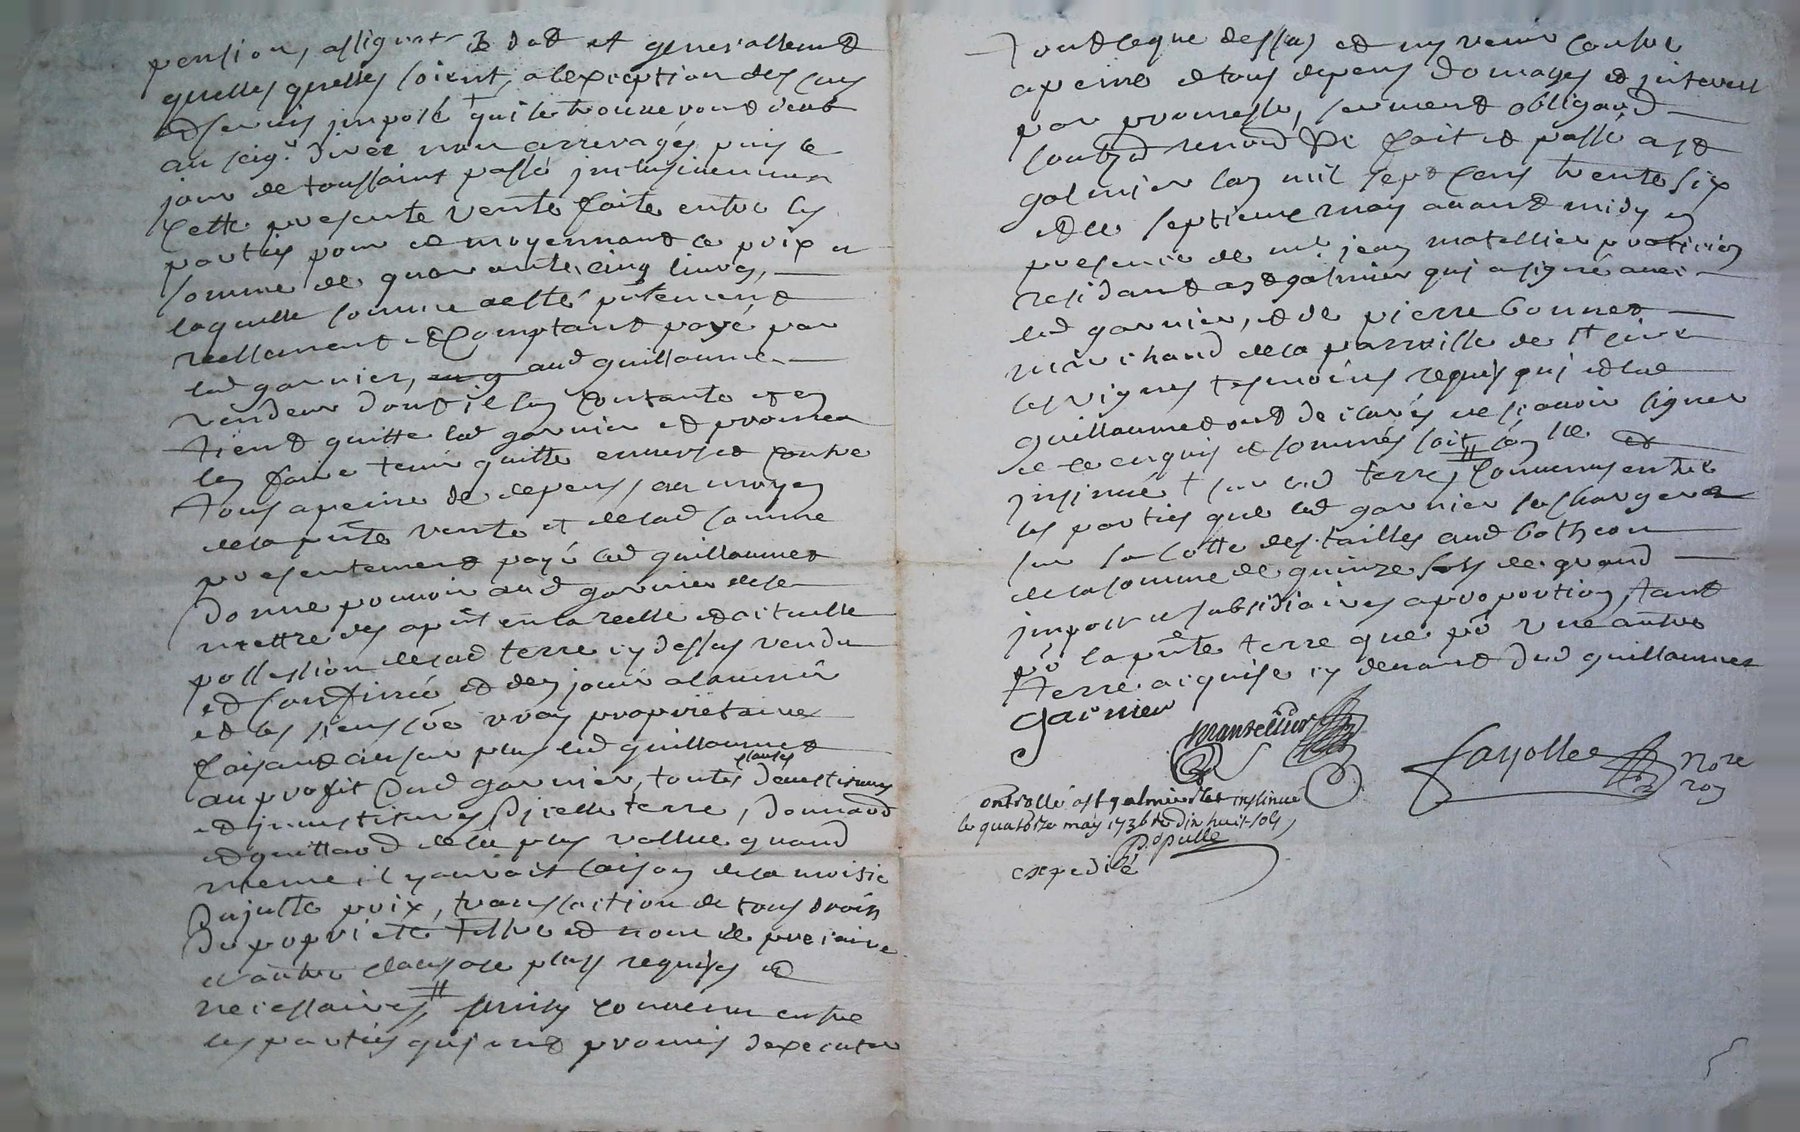 pension, assignats B dat et generallement
quelles quelles soient, alexception des cens
et servis imposé qui se trouveront deub
au seigr. diret non arreragés puis le
jour de toussaint passé inclusivement
Cette presente vente faite entre les
parties pour et moyennant le prix et
somme de quarante cinq livres,
laquelle somme a esté pntement
reellement et Comptant payé par
led garnier, aud guillaumet
vendeur dont il sen Contante et en
tient quitte led garnier et promet
len faire tenir quitte envers et contre
tous apeine de depens, au moyen
de la pnte vente et de lad somme
presentement payé led guillaumet
donne pouvoir aud garnier de se
mettre des apnt en la reelle et actuelle
possession de lad terre cy dessus vendu
et Confinée et den jouir alavenir
et les siens vray proprietaire
faisant cesser plus led guillaumet
au profit dud garnier, toutes clauses devestitures
et jnvestitures dicelle terre, donnant
et quittant de la plus vallue quand
meme il y auroit laison de la moitié
du juste prix, translaction de tous droits
de propriete tiltre et nom de precaire
et autre clause plus requises et
necessaires, Convenu entre
les parties qui ont promis dexecuter
Tout ceque dessus et ny venir Contre
apeine de tous depens domages et jnterest
par promesse, serment obligaon
soubzon renonon De fait et passé a st
galmier lan mil sept Cens trente six
et le septieme may avant midy en
presence de mr jean matellier praticien
residant a st galmier qui a signé avec
led garnier, et de pierre bonnet
marchand de la parroisse de st
les vignes tesmoins requis qui et led
guillaumet ont declarés ne scavoir signer
de ce enquis et sommés soit et
jnsinué sur lad terre, Convenus entre
les parties que led garnier se chargera
sur sa Cotte des tailles aud botheon
de la somme de quinze sols de grand
jmpost et subsidiaires aproportion, tant
po la pnte terre que po une autre
terre acquise cy devant dud guillaumet
garnier
mantellier
fayolle No.re
roy
ontrollé a st galmier et insinué
le quatorze may 1736 dix huit sols
Populle
expedié